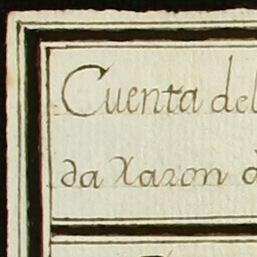 Cuenta del
da Xaron d